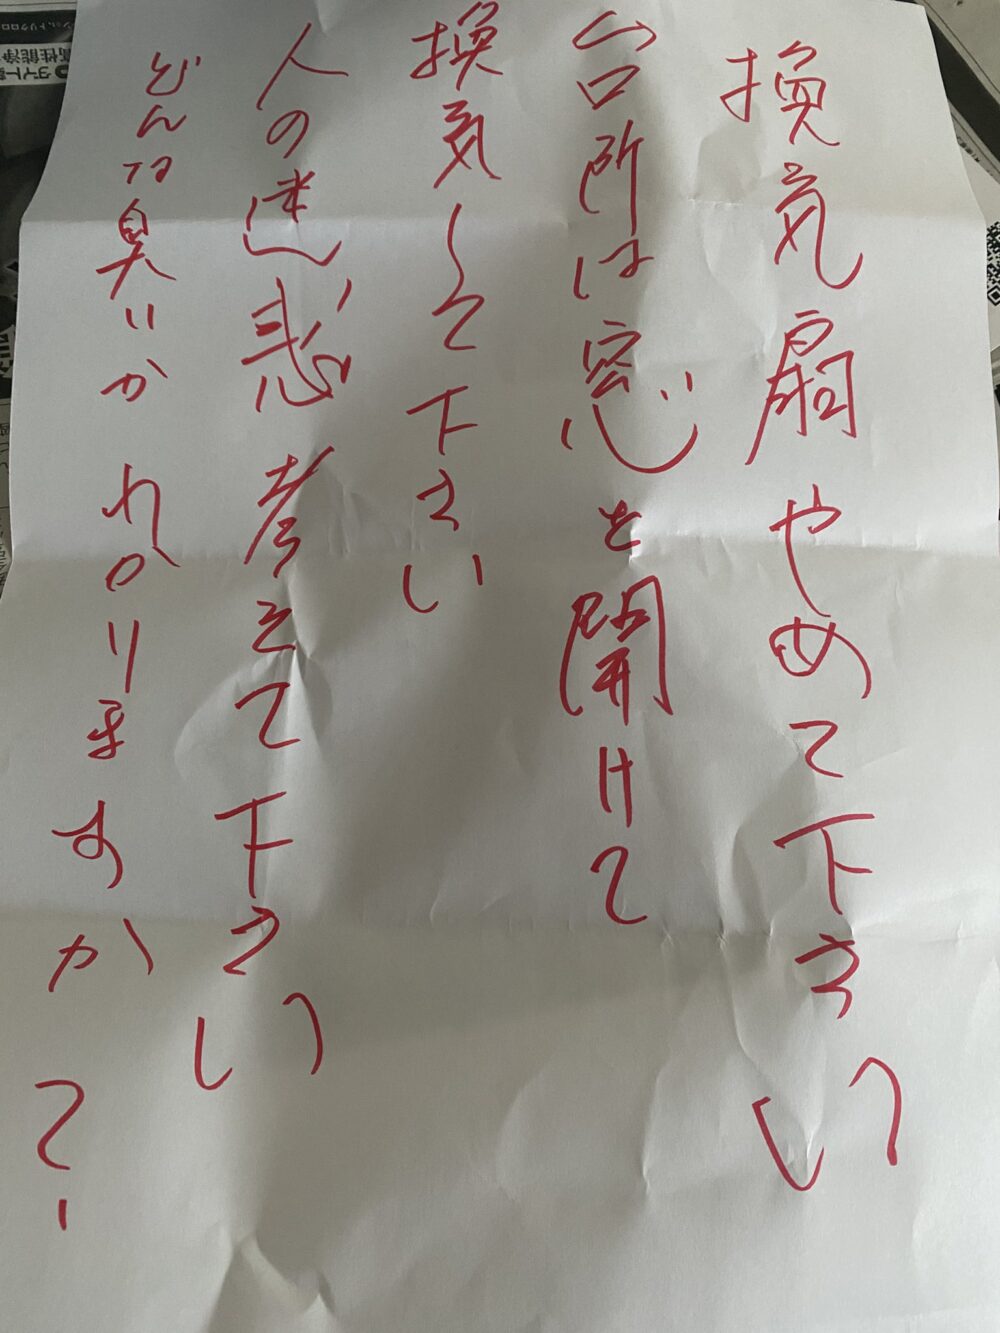 換気扇やめて下さい
台所は窓を開けて
換気して下さい
人の迷惑考えて下さい
どんな臭いかわかりますかてー